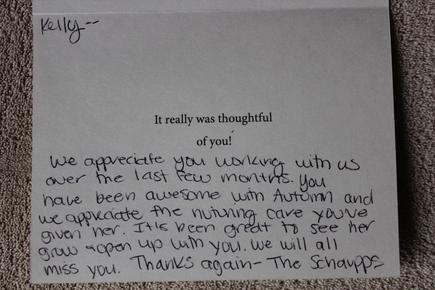 Kelly--
It really was thoughtful
of you!
We appreciate you working with us
over the last few months. You
have been awesome with Autumn and
we appreciate the nuturing care you've
given her. It's been great to see her
grow + open up with you. We will all
miss you. Thanks again- The Schaupps